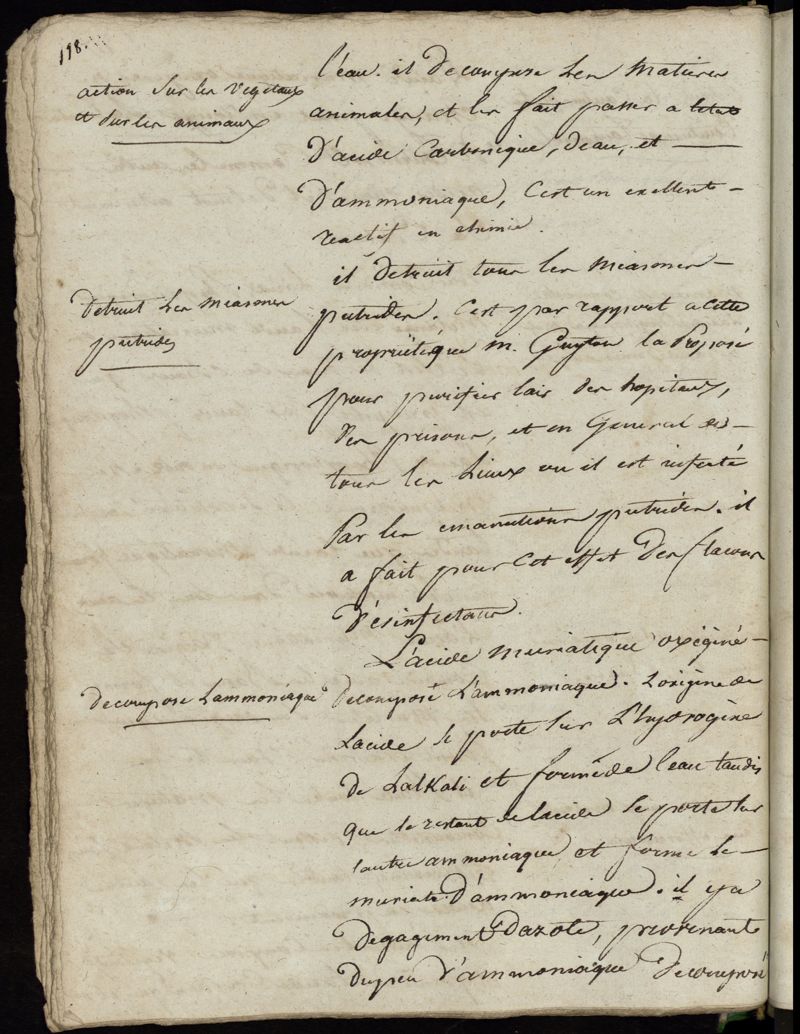 198.
action sur les vegetaux
et sur les animaux
l'eau. il decompose les matieres
animales, et les fait passer a letat
d'acide carbonique, deau, et
d'ammoniaque, C'est un exellent
reactif en chimie.
Detruit les miasmes
putrides
il detruit tous les miasmes
putrides. C'est par rapport a cette
propriété que m. Guyton la proposé
pour purifier lair des hopitaux,
des prisons, et en General de
tous les Lieux ou il est infecté
Par les emanations putrides. il
a fait pour cet effet des flacons
désinfectans.
decompose Lammoniaque
L'acide muriatique oxigéné
decompose L'ammoniaque. Loxigène de
Lacide se porte sur L'hydrogène
de Lalkali et forme de leau tandis
que le restant de lacide se porte sur
lautre ammoniaque et forme le
muriate d'ammoniaque. il y a
degagement Dazote, provenant
du peu d'ammoniaque decomposé